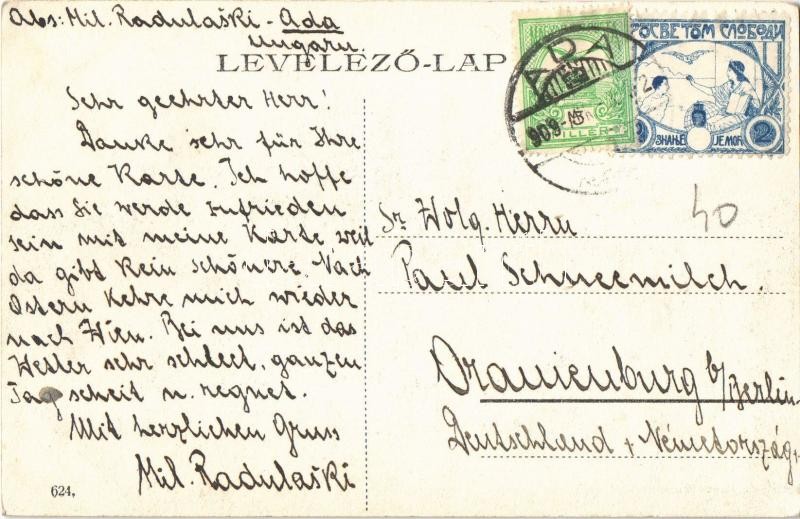 Abs: Mil. Radulaški - Ada
Ungarn.
LEVELEZŐ-LAP
ADA
909
FILLÉR
ПРОСВЕТОМ СЛОБОДИ
2
2
ЗНАЊЕ ЈЕ МОЋ
Sehr geehrter Herr!
Danke sehr für Ihre
schöne Karte. Ich hoffe
dass Sie werde zufrieden
sein mit meine Karte weil
da gibt kein schönere. Nach
Ostern kehre mich wieder
nach Wien. Bei uns ist das
Wetter sehr schlect, ganzen
Tag scheit u. regnet.
Mit herzlichen Gruss
Mil. Radulaški
40
Sr Wolg. Herrn
Paul Schneemilch.
Oranienburg b/Berlin
Deutschland + Németország.
624,